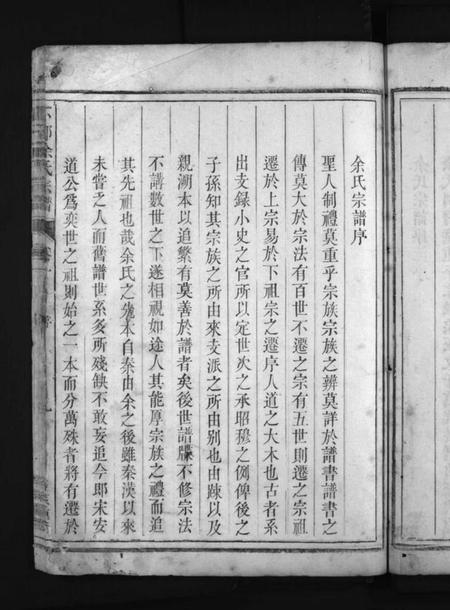 余氏宗譜序
聖人制禮莫重乎宗族宗族之辨莫詳於譜書譜書之
傳莫大於宗法有百世不遷之宗有五世則遷之宗祖
遷於上宗易於下祖宗之遷序人道之大本也古者系
出支錄小史之官所以定世次之承昭穆之例俾後之
子孫知其宗族之所由來支派之所由別也由踈以及
親溯本以追繁有莫善於譜者矣後世譜牒不修宗法
不講數世之下遂相視如途人其能厚宗族之禮而追
其先祖也哉余氏之先本自秦由余之後雖秦漢以來
未嘗之人而舊譜世系多所殘缺不敢妄追今郎宋安
道公爲奕世之祖則始之一本而分萬殊者將有遷於
余氏宗譜